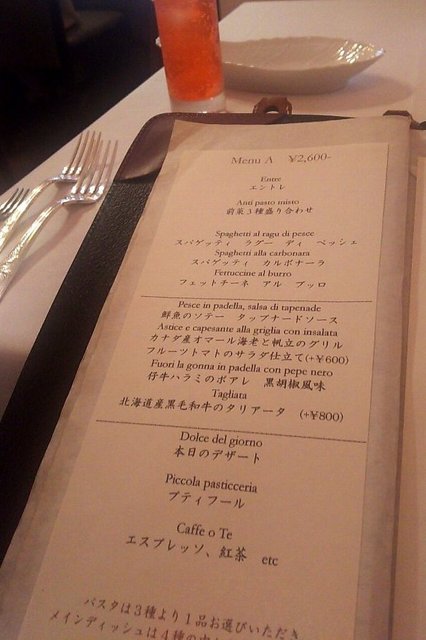 Menu A ¥2,600-
Entre
エントレ
Anti pasto misto
前菜3種盛り合わせ
Spaghetti al ragu di pesce
スパゲッティ ラグー ディ ペッシェ
Spaghetti alla carbonara
スパゲッティ カルボナーラ
Ferruccine al burro
フェットチーネ アル ブッロ
Pesce in padella, salsa di tapenade
鮮魚のソテー タップナードソース
Astice e capesante alla griglia con insalata
カナダ産オマール海老と帆立のグリル
フルーツトマトのサラダ仕立て(+¥600)
Fuori la gonna in padella con pepe nero
仔牛ハラミのポアレ 黒胡椒風味
Tagliata
北海道産黒毛和牛のタリアータ (+¥800)
Dolce del giorno
本日のデザート
Piccola pasticceria
プティフール
Caffe o Te
エスプレッソ、紅茶 etc
パスタは3種より1品お選びいただき
メインディッシュは4種の